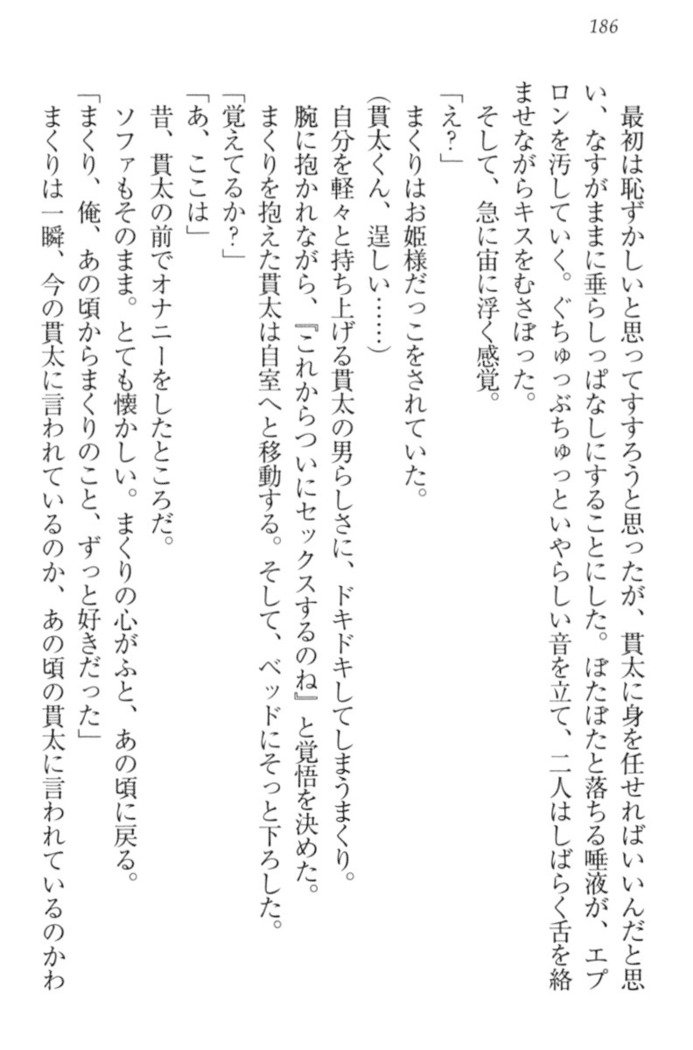 186
最初は恥ずかしいと思ってすすろうと思ったが、貫太に身を任せればいいんだと思
い、なすがままに垂らしっぱなしにすることにした。ぽたぽたと落ちる唾液が、エプ
ロンを汚していく。ぐちゅっぶちゅっといやらしい音を立て、二人はしばらく舌を絡
ませながらキスをむさぼった。
そして、急に宙に浮く感覚。
「え？」
まくりはお姫様だっこをされていた。
（貫太くん、逞しい……）
自分を軽々と持ち上げる貫太の男らしさに、ドキドキしてしまうまくり。
腕に抱かれながら、『これからついにセックスするのね』と覚悟を決めた。
まくりを抱えた貫太は自室へと移動する。そして、ベッドにそっと下ろした。
「覚えてるか？」
「あ、ここは」
昔、貫太の前でオナニーをしたところだ。
ソファもそのまま。とても懐かしい。まくりの心がふと、あの頃に戻る。
「まくり、俺、あの頃からまくりのこと、ずっと好きだった」
まくりは一瞬、今の貫太に言われているのか、あの頃の貫太に言われているのかわ